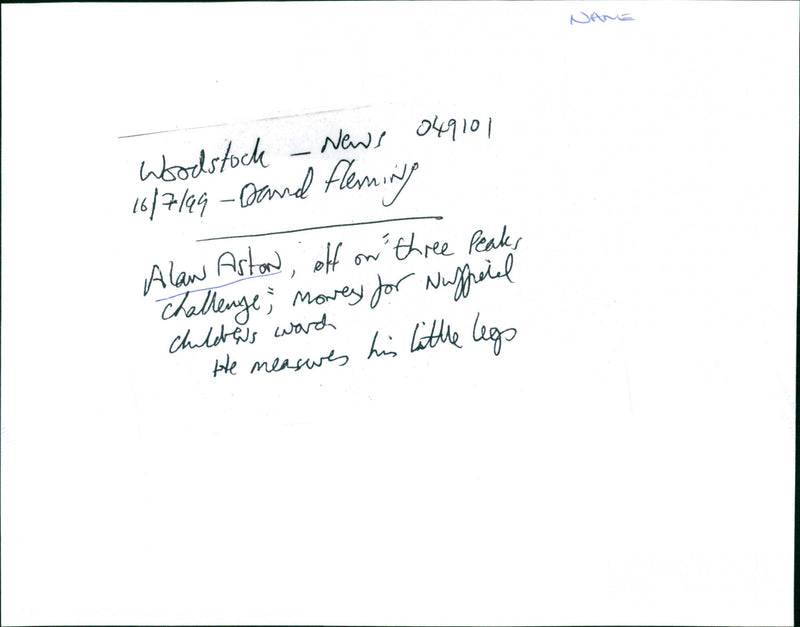 NAME
Woodstock – News 049101
16/7/99 – David Fleming
Alan Aston, off on "three Peaks
challenge"; money for Nuffield
childrens ward
He measures his little legs